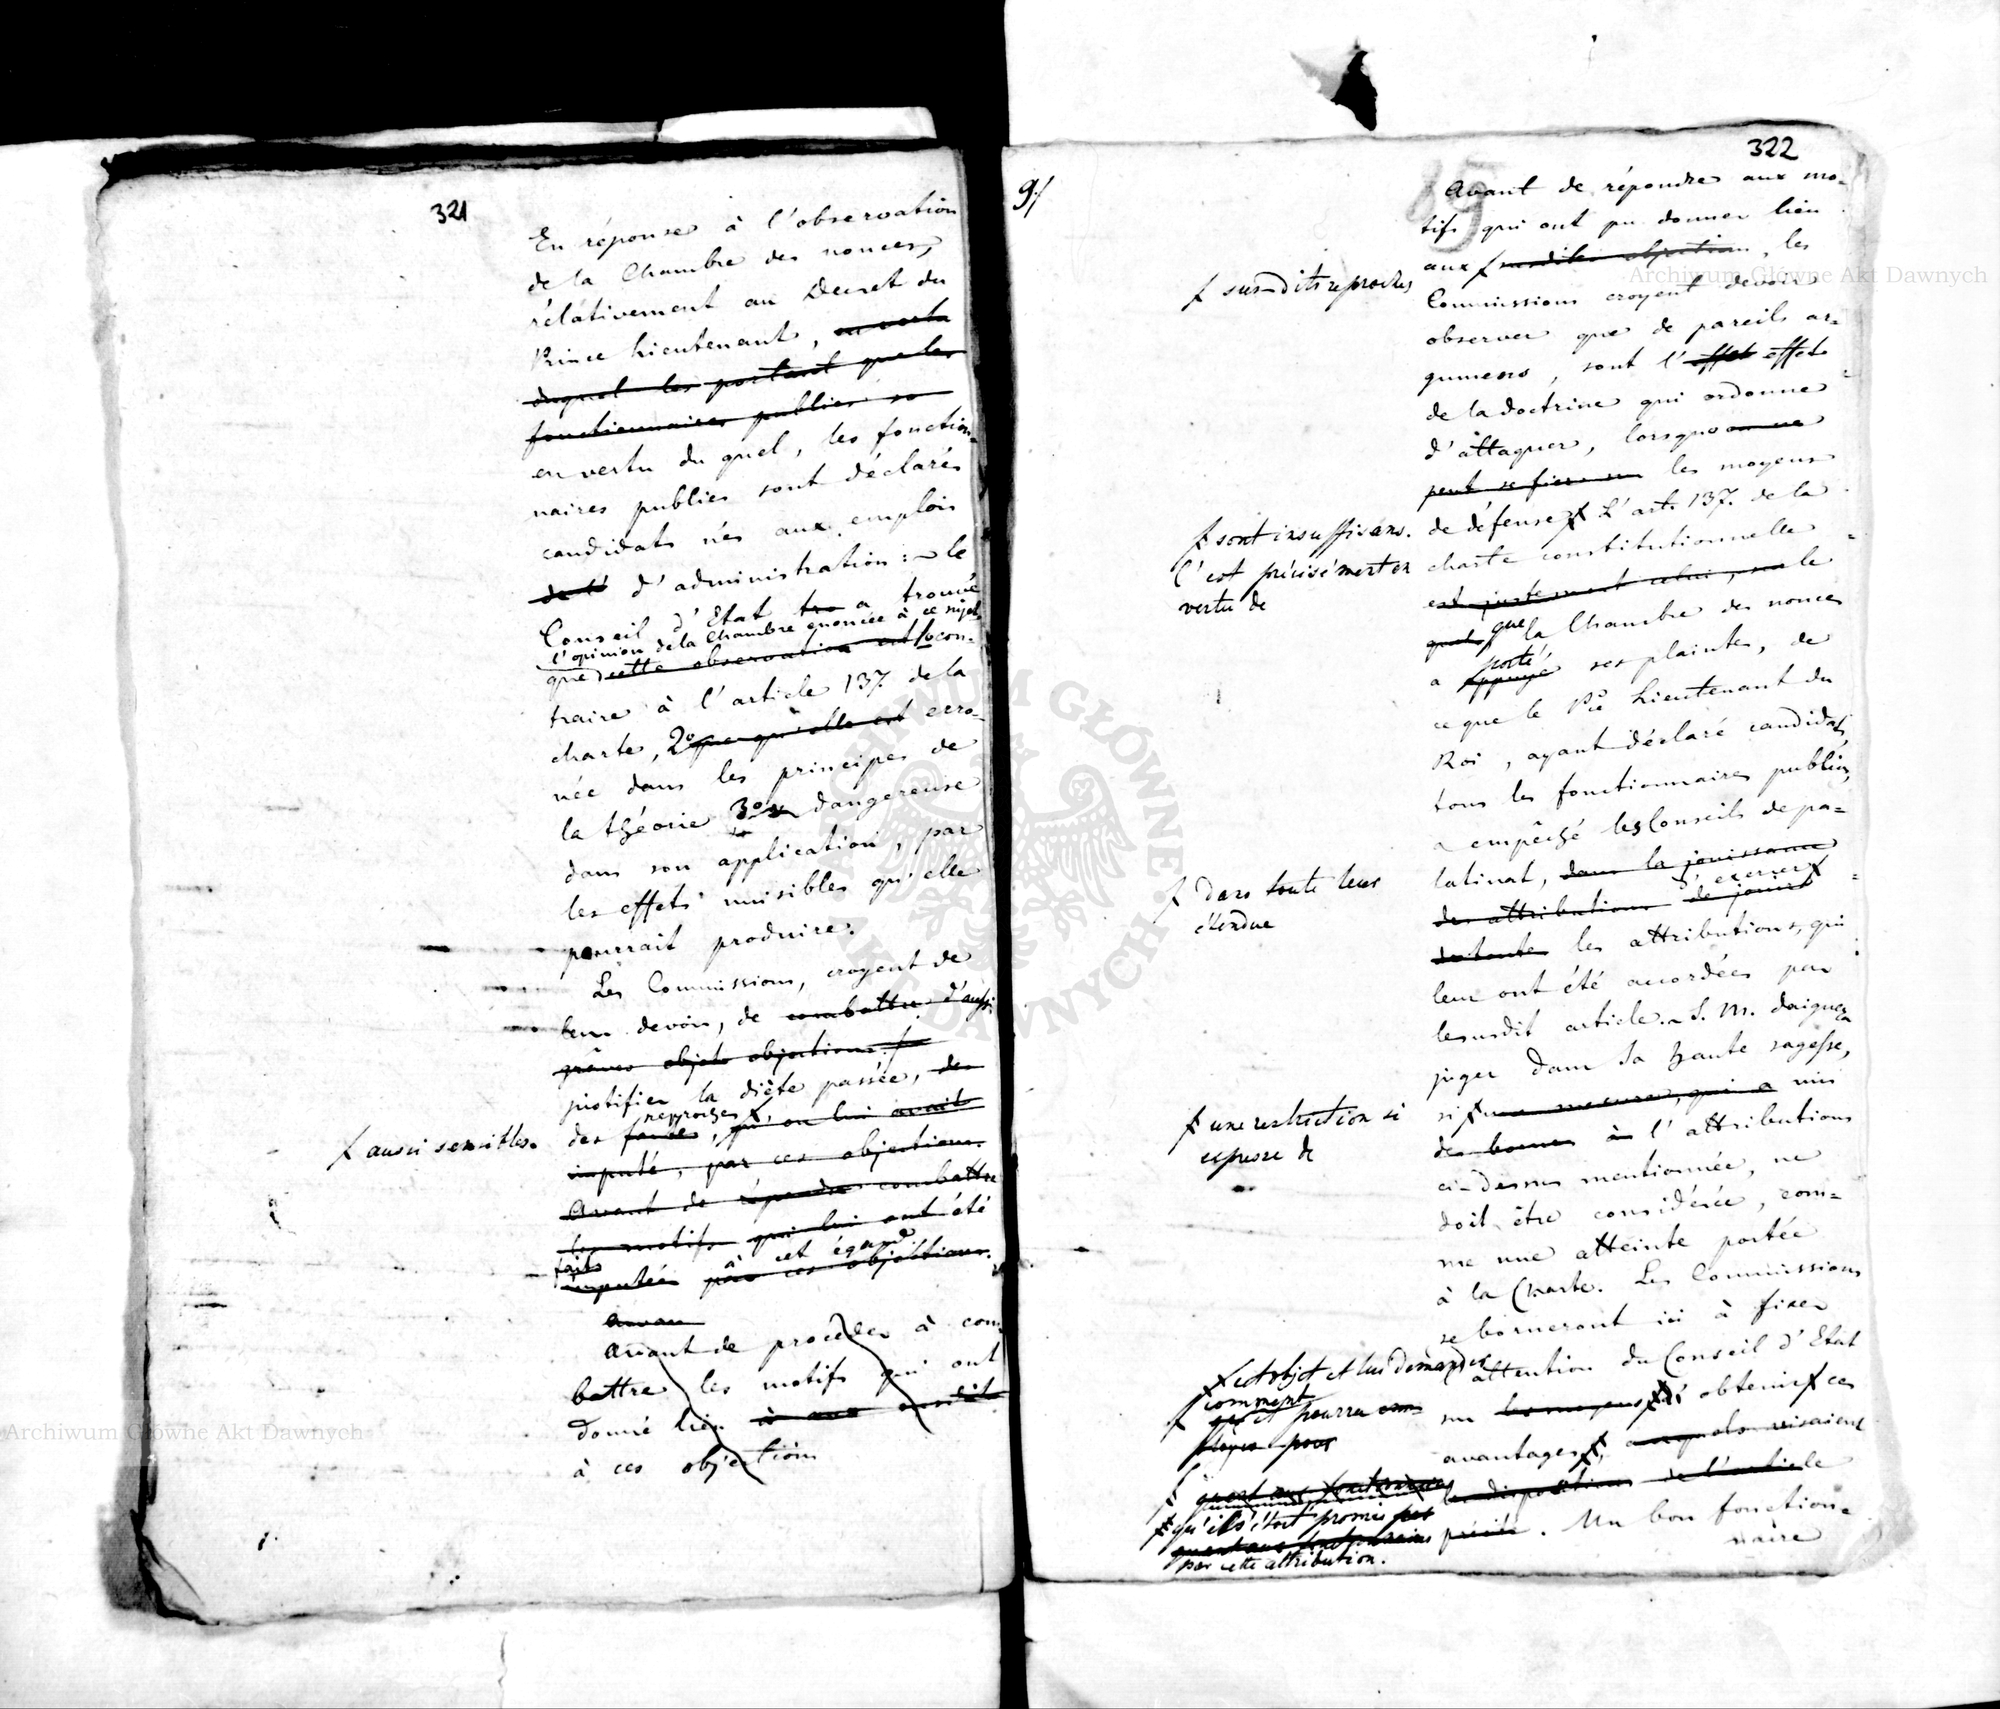 321
En réponse à l'observation
de la Chambre des nonces,
rélativement au Decret du
Prince Lieutenant, en vertu
duquel les portant que les
fonctionnaires publics so
en vertu du quel, les fonction-
naires publics sont déclarés
candidats nés aux emplois
de l' d'administration : le
Conseil d'Etat tro a trouvé
l'opinion de la Chambre enoncée à ce sujet
que cette observation est con-
traire à l'article 137. de la
charte, 2° que qu'elle est erro-
née dans les principes de
la théorie 3° dangereuse
dans son application, par
les effets nuisibles qu'elle
pourrait produire.
Les Commissions, croyent de
leur devoir, de combattre d'aussi
grâves objets objections.
justifier la diète passée, des
reproches
des fautes, qu'on lui avait
ƒ aussi sensibles.
imputé, par ces objections.
Avant de répondre combattre
les motifs qui lui ont été
faits à cet égard
imputées par ces objections.
Avan
Avant de procéder à com-
battre les motifs qui ont
donné lieu à aux susdit
à ces objections
9/
322
Avant de répondre aux mo-
tifs qui ont pu donner lieu
aux ƒ susdites objections, les
ƒ susdits reproches
Commissions croyent devoir
observer que de pareils ar-
gumens, sont l'effet effet
de la doctrine qui ordonne
d'attaquer, lorsque on ne
peut se fier les moyens
de défense ƒ L'art. 137. de la
ƒ sont insuffisans.
C'est précisément en
vertu de
charte constitutionnelle
est justement celui, sur le
quel que la Chambre des nonces
porté
a appuyé ses plaintes, de
ce que le Pce Lieutenant du
Roi, ayant déclaré candidats,
tous les fonctionnaires publics,
a empêché les Conseils de pa-
latinat, dans la jouissance
d'exercer ƒ
des attributions de jouir
ƒ dans toute leur
étendue
de toute les attributions, qui
leur ont été accordées par
le susdit article. S. M. daignera
juger dans Sa haute sagesse,
si ƒ une mesure, qui a mis
ƒ une restriction si
expresse de
des bornes à l'attributions
ci-dessus mentionnée, ne
doit être considérée, com-
me une atteinte portée
à la Charte. Les Commissions
se borneront ici à fixer
l'attention du Conseil d'Etat
ƒ cet objet et lui demander
comment
pourra em-
ployer pour
sur les moyens d'obtenir ƒ ces
avantages, auxquels visaient
les dispositions de l'article
ƒ qu'il s'était promis
par cette attribution.
précité. Un bon fonction-
naire
Archiwum Główne Akt Dawnych
Archiwum Główne Akt Dawnych
ARCHIWUM GŁÓWNE AKT DAWNYCH